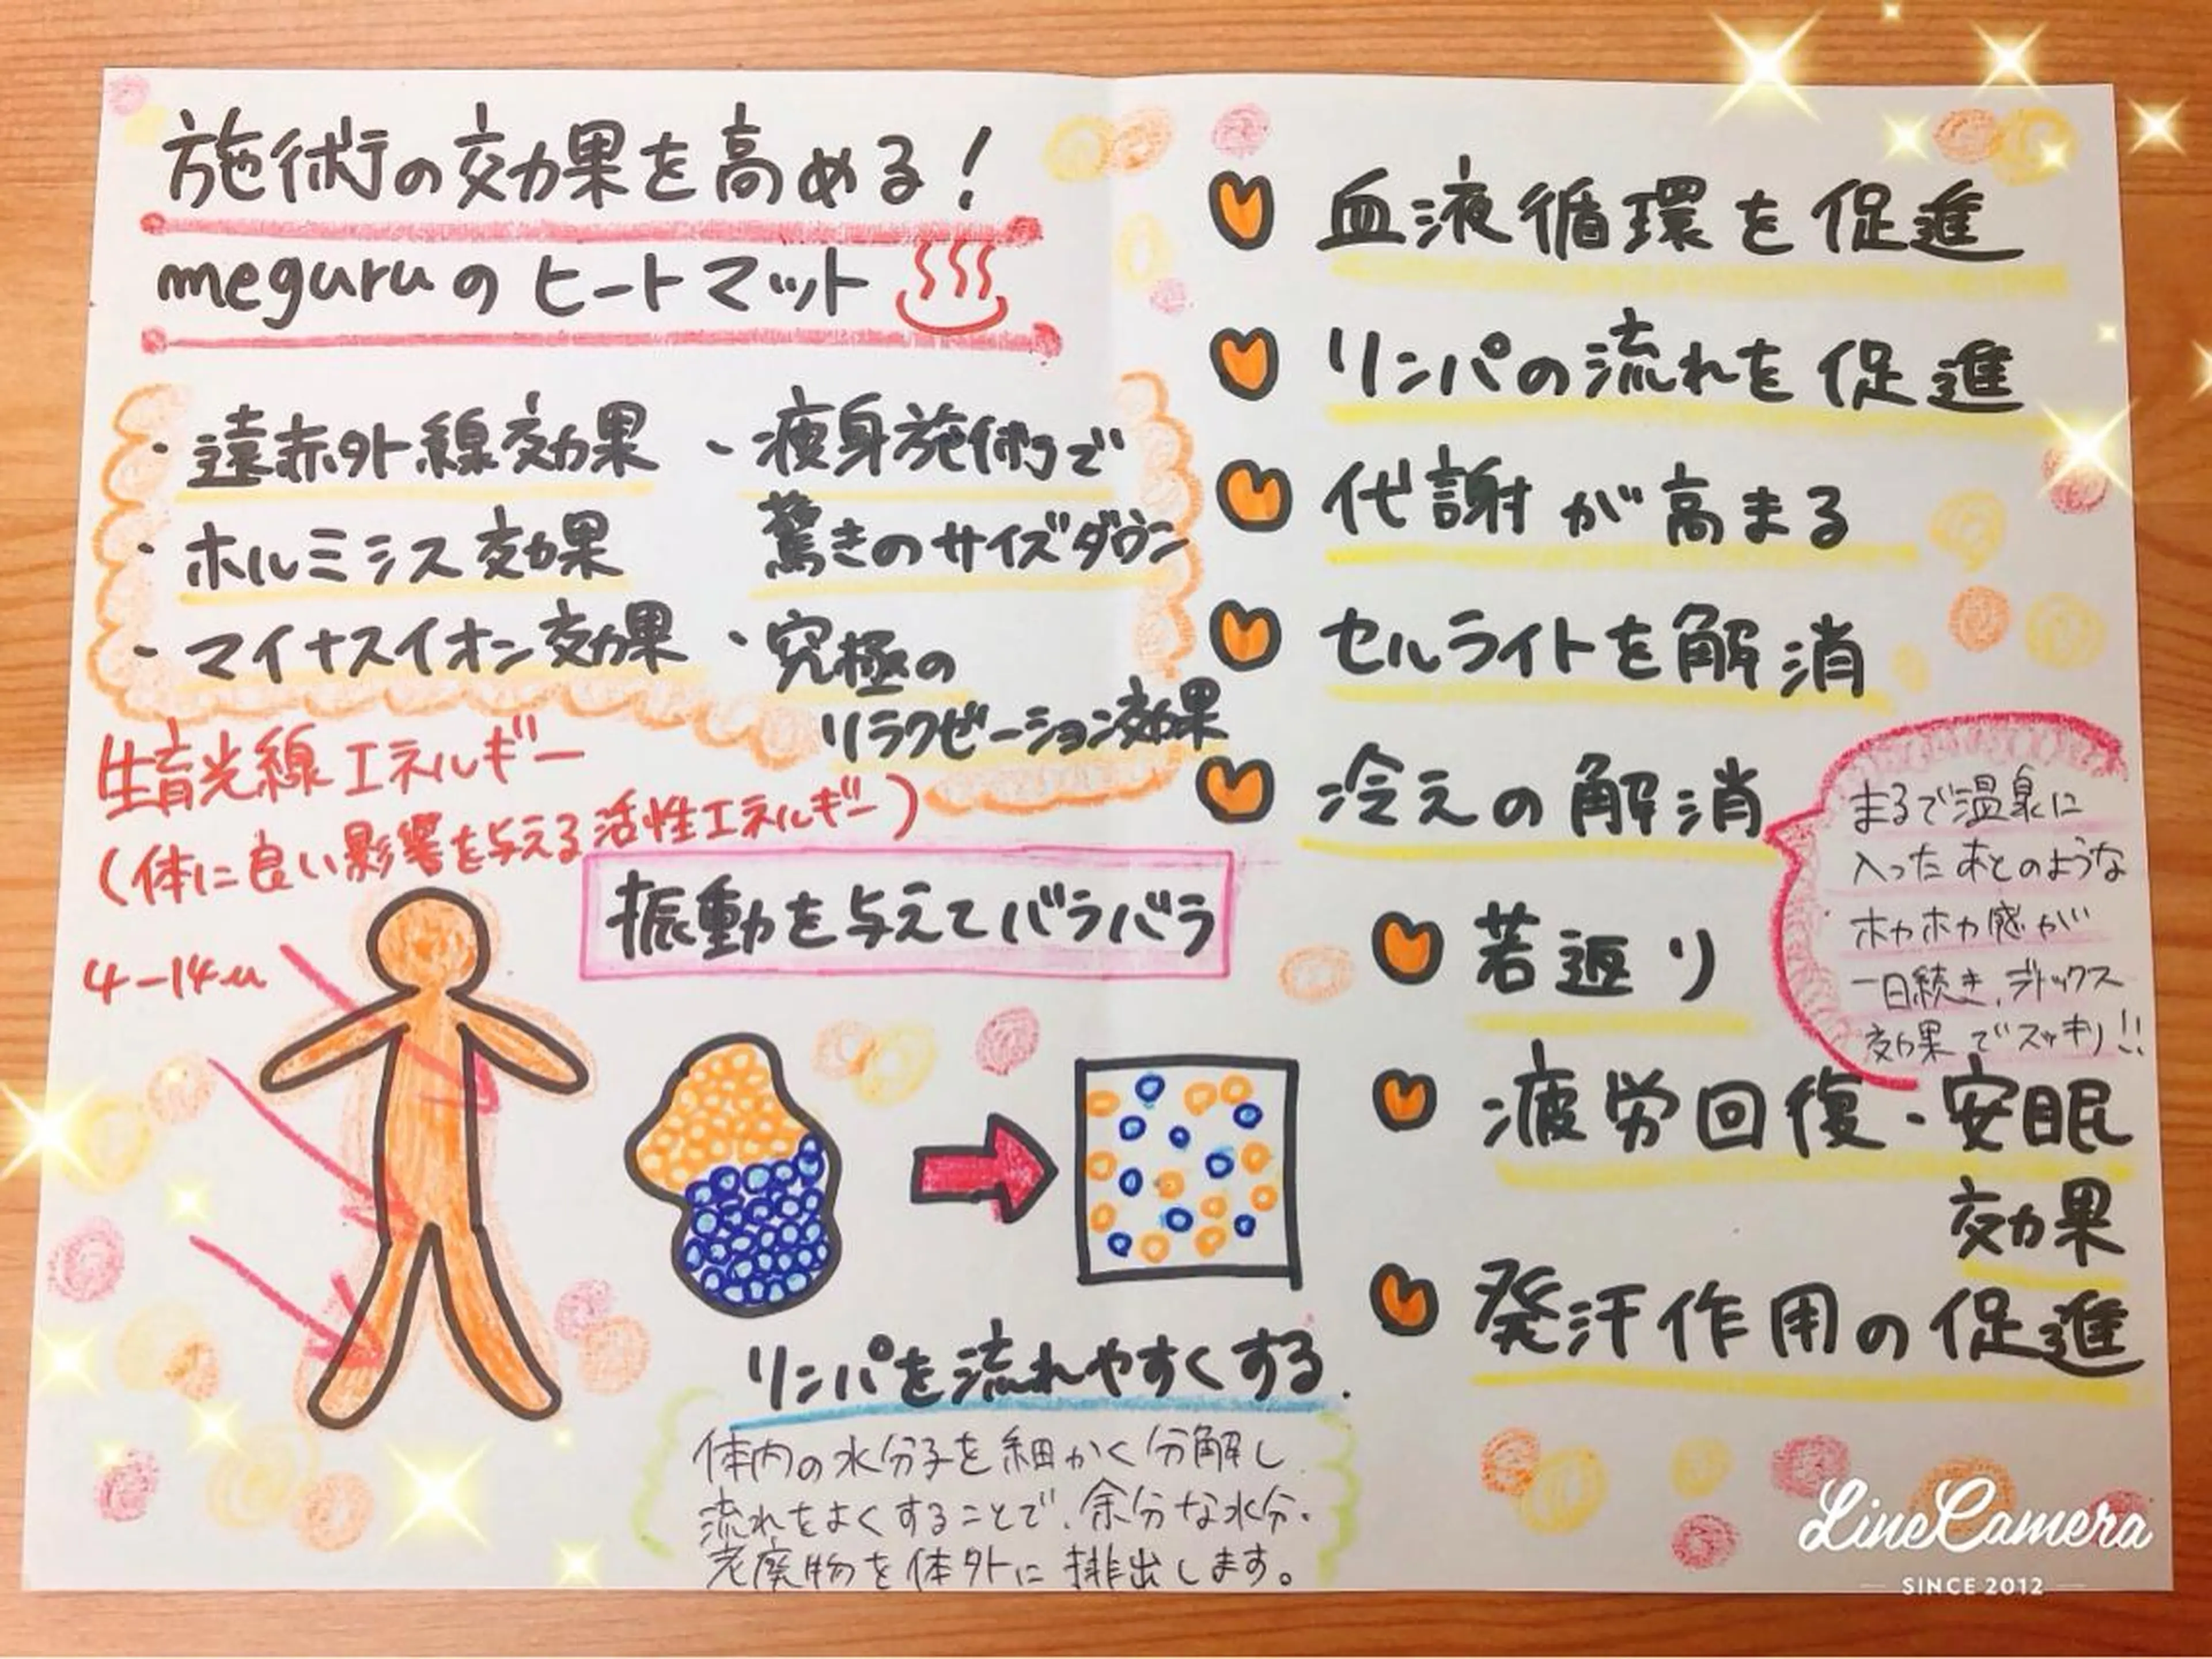 施術の効果を高める！
meguruのヒートマット
・遠赤外線効果
・ホルミシス効果
・マイナスイオン効果
・痩身施術で
驚きのサイズダウン
・究極の
リラクゼーション効果
生育光線エネルギー
(体に良い影響を与える活性エネルギー)
4-14u
振動を与えてバラバラ
リンパを流れやすくする.
体内の水分子を細かく分解し
流れをよくすることで、余分な水分・
老廃物を体外に排出します。
血液循環を促進
リンパの流れを促進
代謝が高まる
セルライトを解消
冷えの解消
まるで温泉に
入ったあとのような
ホカホカ感が
一日続き、デトックス
効果でスッキリ!!
若返り
疲労回復・安眠
効果
発汗作用の促進
LineCamera
SINCE 2012